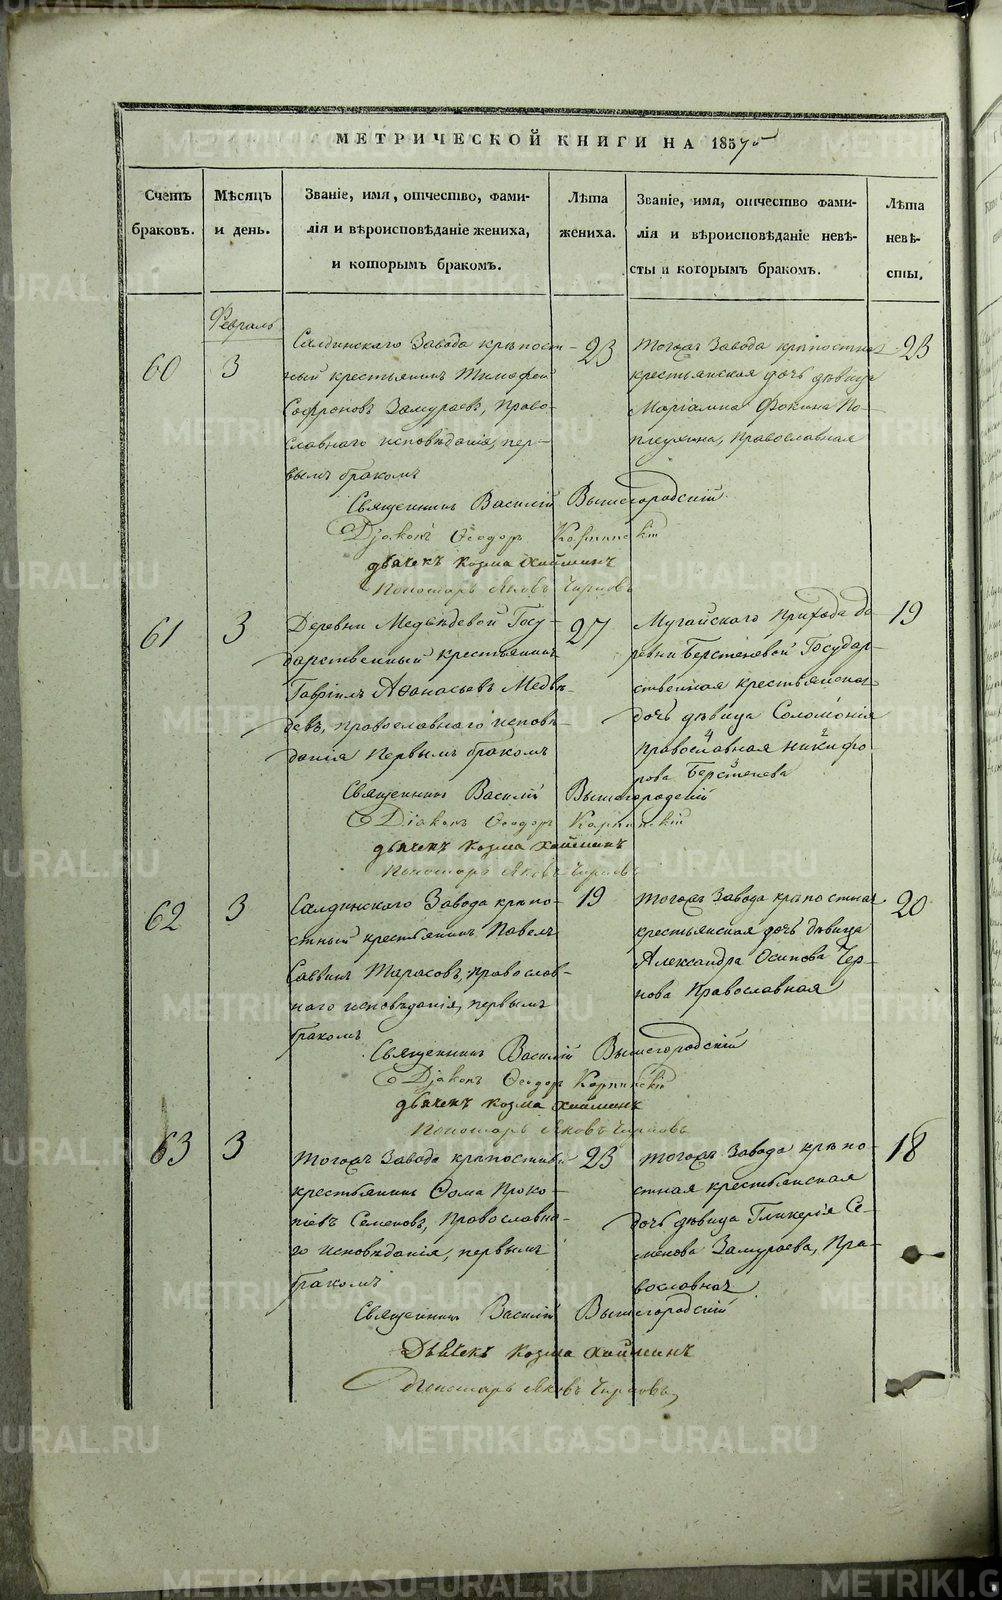 МЕТРИЧЕСКОЙ КНИГИ НА 1857
Счетъ браковъ.
Мѣсяцъ и день.
Званіе, имя, отчество, фами-
лія и вѣроисповѣданіе жениха,
и которымъ бракомъ.
Лѣта жениха.
Званіе, имя, отчество фами-
лія и вѣроисповѣданіе невѣ-
сты и которымъ бракомъ.
Лѣта невѣ-
сты.
Февраль
60
3
Салдинскаго Завода крѣпост-
ный крестьянинъ Тимофей
Софроновъ Замураевъ, Право-
славнаго исповѣданія, пер-
вымъ бракомъ
23
Тогожъ Завода крѣпостная
крестьянская дочь дѣвица
Маріамна Фокина По-
православная
23
Священникъ Василій Вышегородскій
Діаконъ Ѳеодоръ Карпинскій
дьячекъ Козма
Пономарь Яковъ
61
3
Деревни Медвѣдевой Госу-
дарственный крестьянинъ
Гавріилъ Аѳанасьевъ Медвѣ-
девъ, православнаго исповѣ-
данія Первымъ бракомъ
27
Мугайскаго Прихода де
ревни Берстеневой Государ-
ственная крестьянская
дочь дѣвица Соломонія
Православная Никифо
рова Берстенева
19
Священникъ Василій Вышегородскій
Діаконъ Ѳеодоръ Карпинскій
дьячекъ Козма
Пономарь Яковъ
62
3
Салдинскаго Завода крѣпо-
стный крестьянинъ Павелъ
Саввинъ Тарасовъ, православ-
наго исповѣданія, первымъ
бракомъ
19
Тогожъ Завода крѣпостная
крестьянская дочь дѣвица
Александра Осипова Чер-
нова Православная
20
Священникъ Василій Вышегородскій
Діаконъ Ѳеодоръ Карпинскій
дьячекъ Козма
Пономарь Яковъ
63
3
Тогожъ Завода крѣпостный
крестьянинъ Ѳома Проко-
піевъ Семеновъ, Православна-
го исповѣданія, первымъ
бракомъ
23
Тогожъ Завода крѣпо-
стная крестьянская
дочь дѣвица Гликерія Се-
менова Замураева, Пра-
вославная
18
Священникъ Василій Вышегородскій
Дьячекъ Козма
Пономарь Яковъ
METRIKI.GASO-URAL.RU